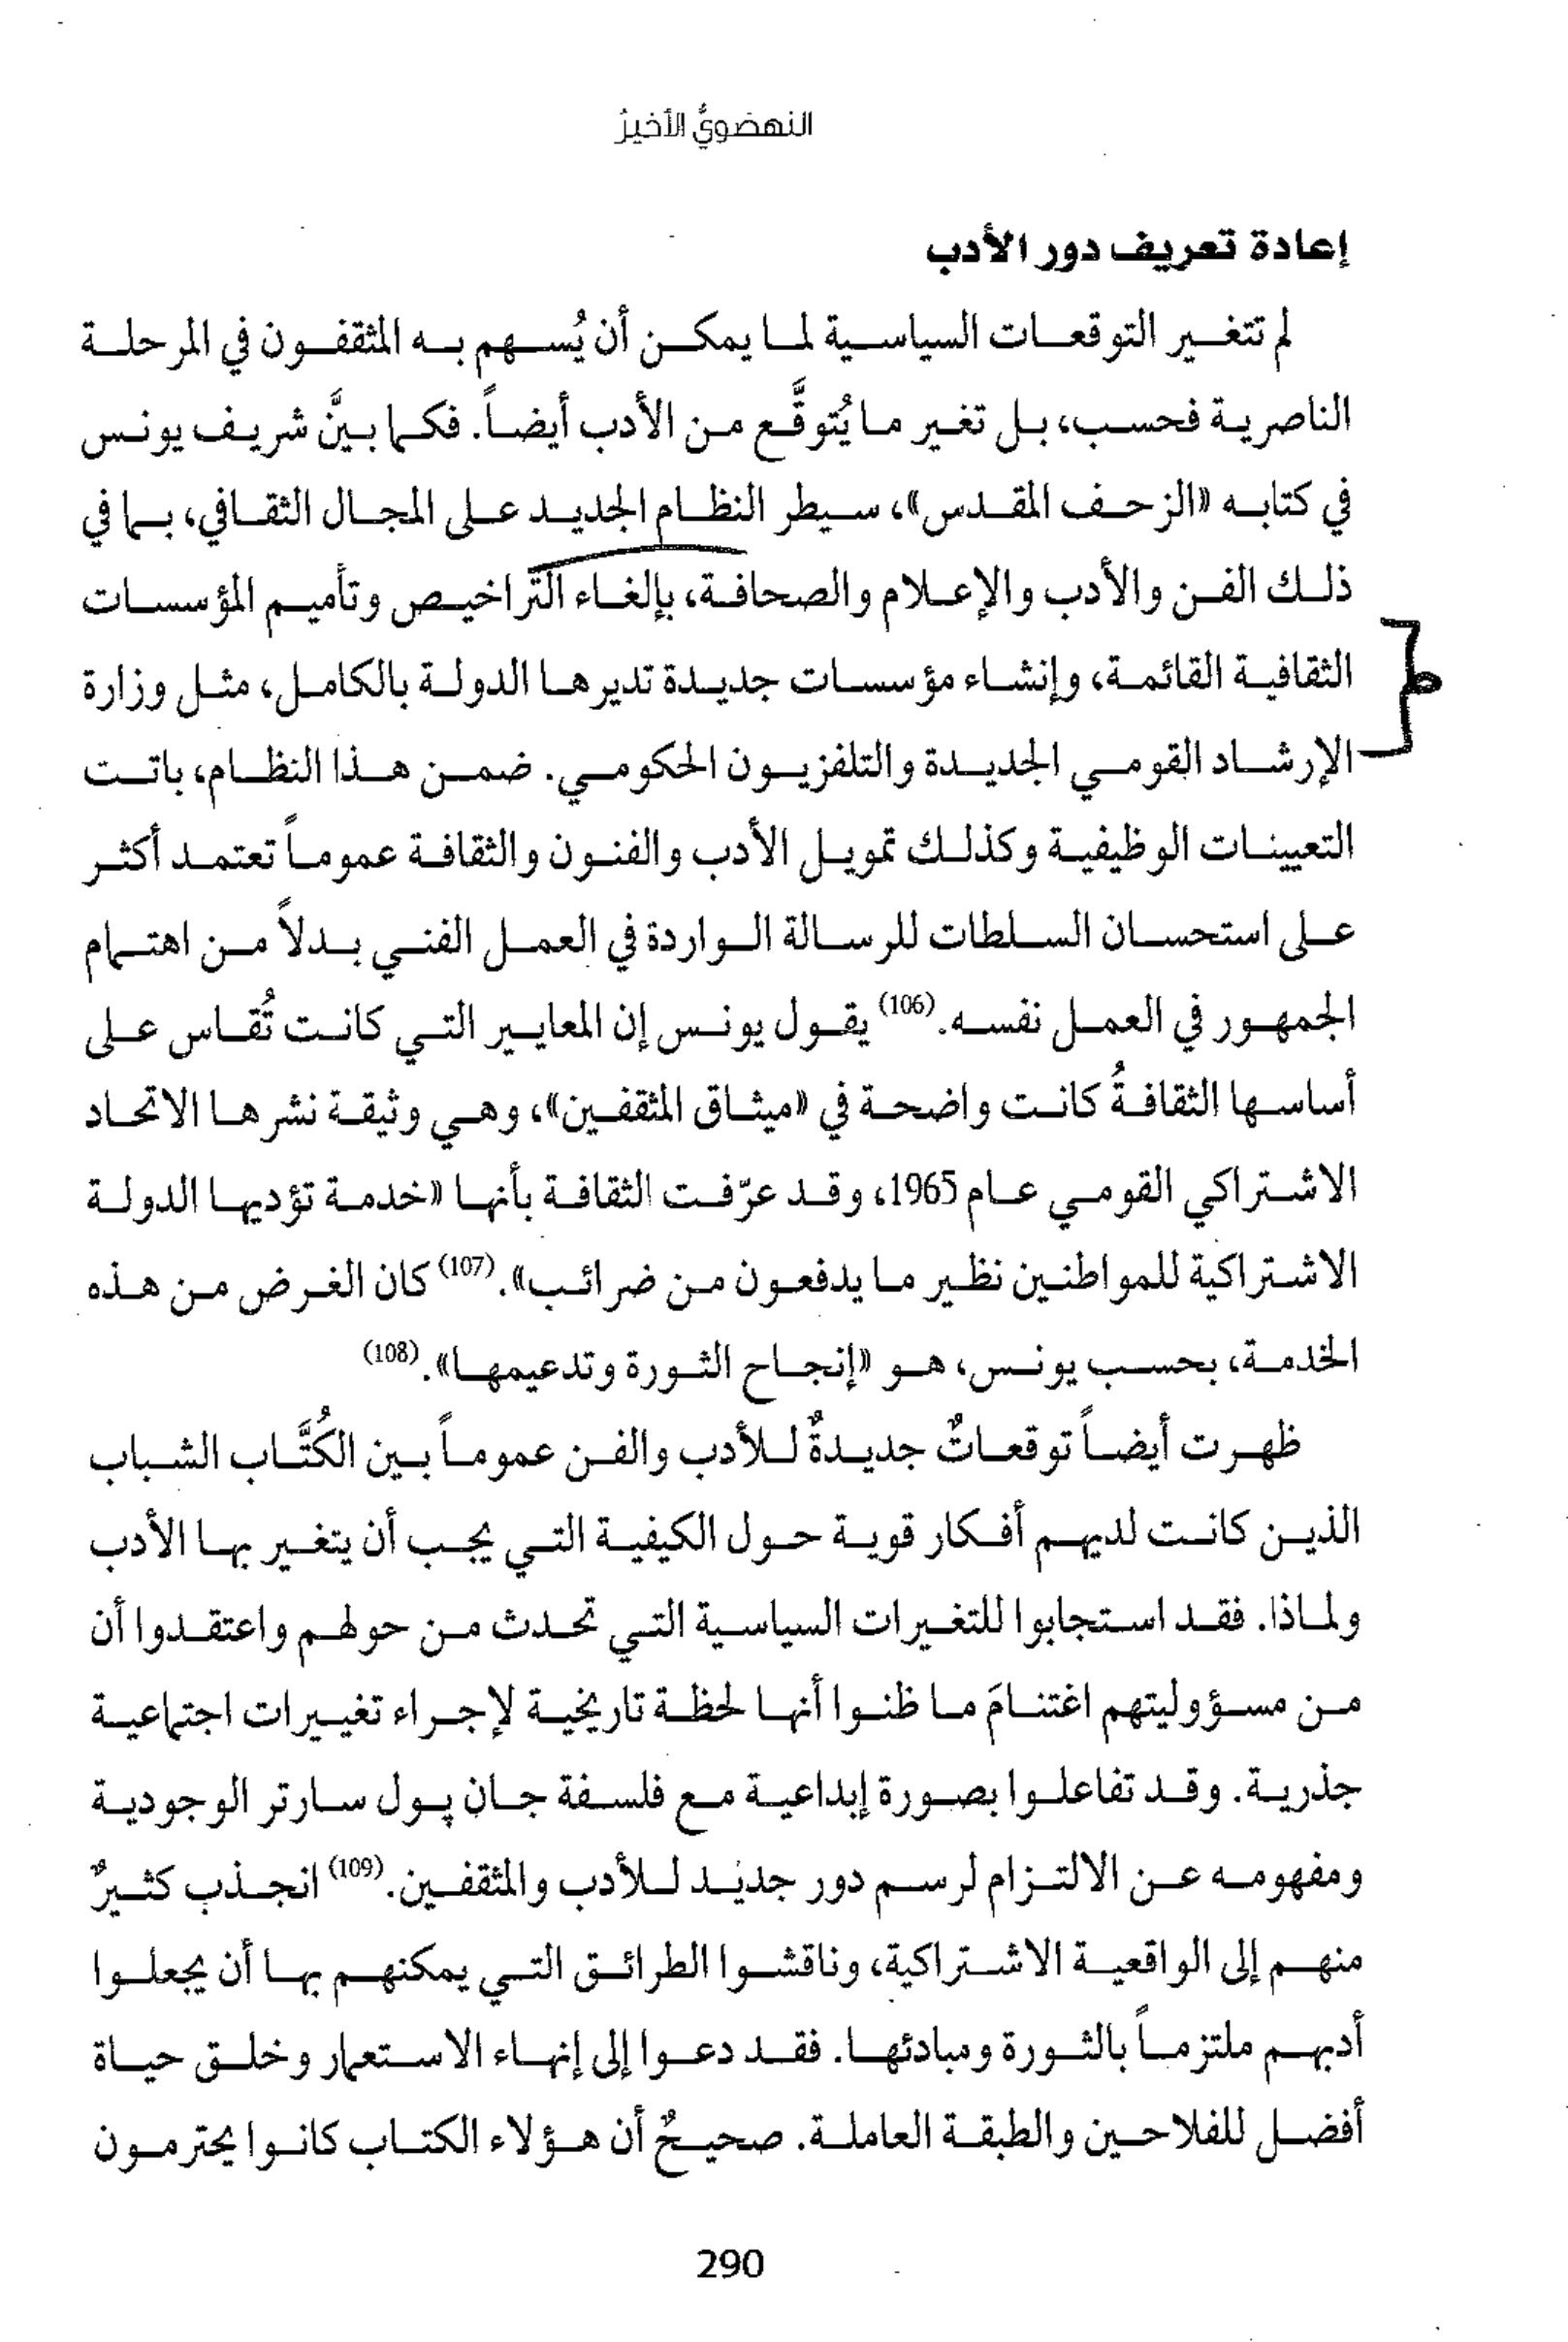 النهضويُّ الأخيرُ
إعادة تعريف دور الأدب
لم تتغير التوقعات السياسية لما يمكن أن يُسهم به المثقفون في المرحلة
الناصرية فحسب، بل تغير ما يُتوقَّع من الأدب أيضاً. فكما بيَّن شريف يونس
في كتابه «الزحف المقدس»، سيطر النظام الجديد على المجال الثقافي، بما في
ذلك الفن والأدب والإعلام والصحافة، بإلغاء التراخيص وتأميم المؤسسات
الثقافية القائمة، وإنشاء مؤسسات جديدة تديرها الدولة بالكامل، مثل وزارة
الإرشاد القومي الجديدة والتلفزيون الحكومي. ضمن هذا النظام، باتت
التعيينات الوظيفية وكذلك تمويل الأدب والفنون والثقافة عموماً تعتمد أكثر
على استحسان السلطات للرسالة الواردة في العمل الفني بدلاً من اهتمام
الجمهور في العمل نفسه.(106) يقول يونس إن المعايير التي كانت تُقاس على
أساسها الثقافةُ كانت واضحة في «ميثاق المثقفين»، وهي وثيقة نشرها الاتحاد
الاشتراكي القومي عام 1965، وقد عرّفت الثقافة بأنها «خدمة تؤديها الدولة
الاشتراكية للمواطنين نظير ما يدفعون من ضرائب».(107) كان الغرض من هذه
الخدمة، بحسب يونس، هو «إنجاح الثورة وتدعيمها».(108)
ظهرت أيضاً توقعاتٌ جديدةٌ للأدب والفن عموماً بين الكُتَّاب الشباب
الذين كانت لديهم أفكار قوية حول الكيفية التي يجب أن يتغير بها الأدب
ولماذا. فقد استجابوا للتغيرات السياسية التي تحدث من حولهم واعتقدوا أن
من مسؤوليتهم اغتنامَ ما ظنوا أنها لحظة تاريخية لإجراء تغييرات اجتماعية
جذرية. وقد تفاعلوا بصورة إبداعية مع فلسفة جان پول سارتر الوجودية
ومفهومه عن الالتزام لرسم دور جديد للأدب والمثقفين.(109) انجذب كثيرٌ
منهم إلى الواقعية الاشتراكية، وناقشوا الطرائق التي يمكنهم بها أن يجعلوا
أدبهم ملتزماً بالثورة ومبادئها. فقد دعوا إلى إنهاء الاستعمار وخلق حياة
أفضل للفلاحين والطبقة العاملة. صحيحٌ أن هؤلاء الكتاب كانوا يحترمون
290